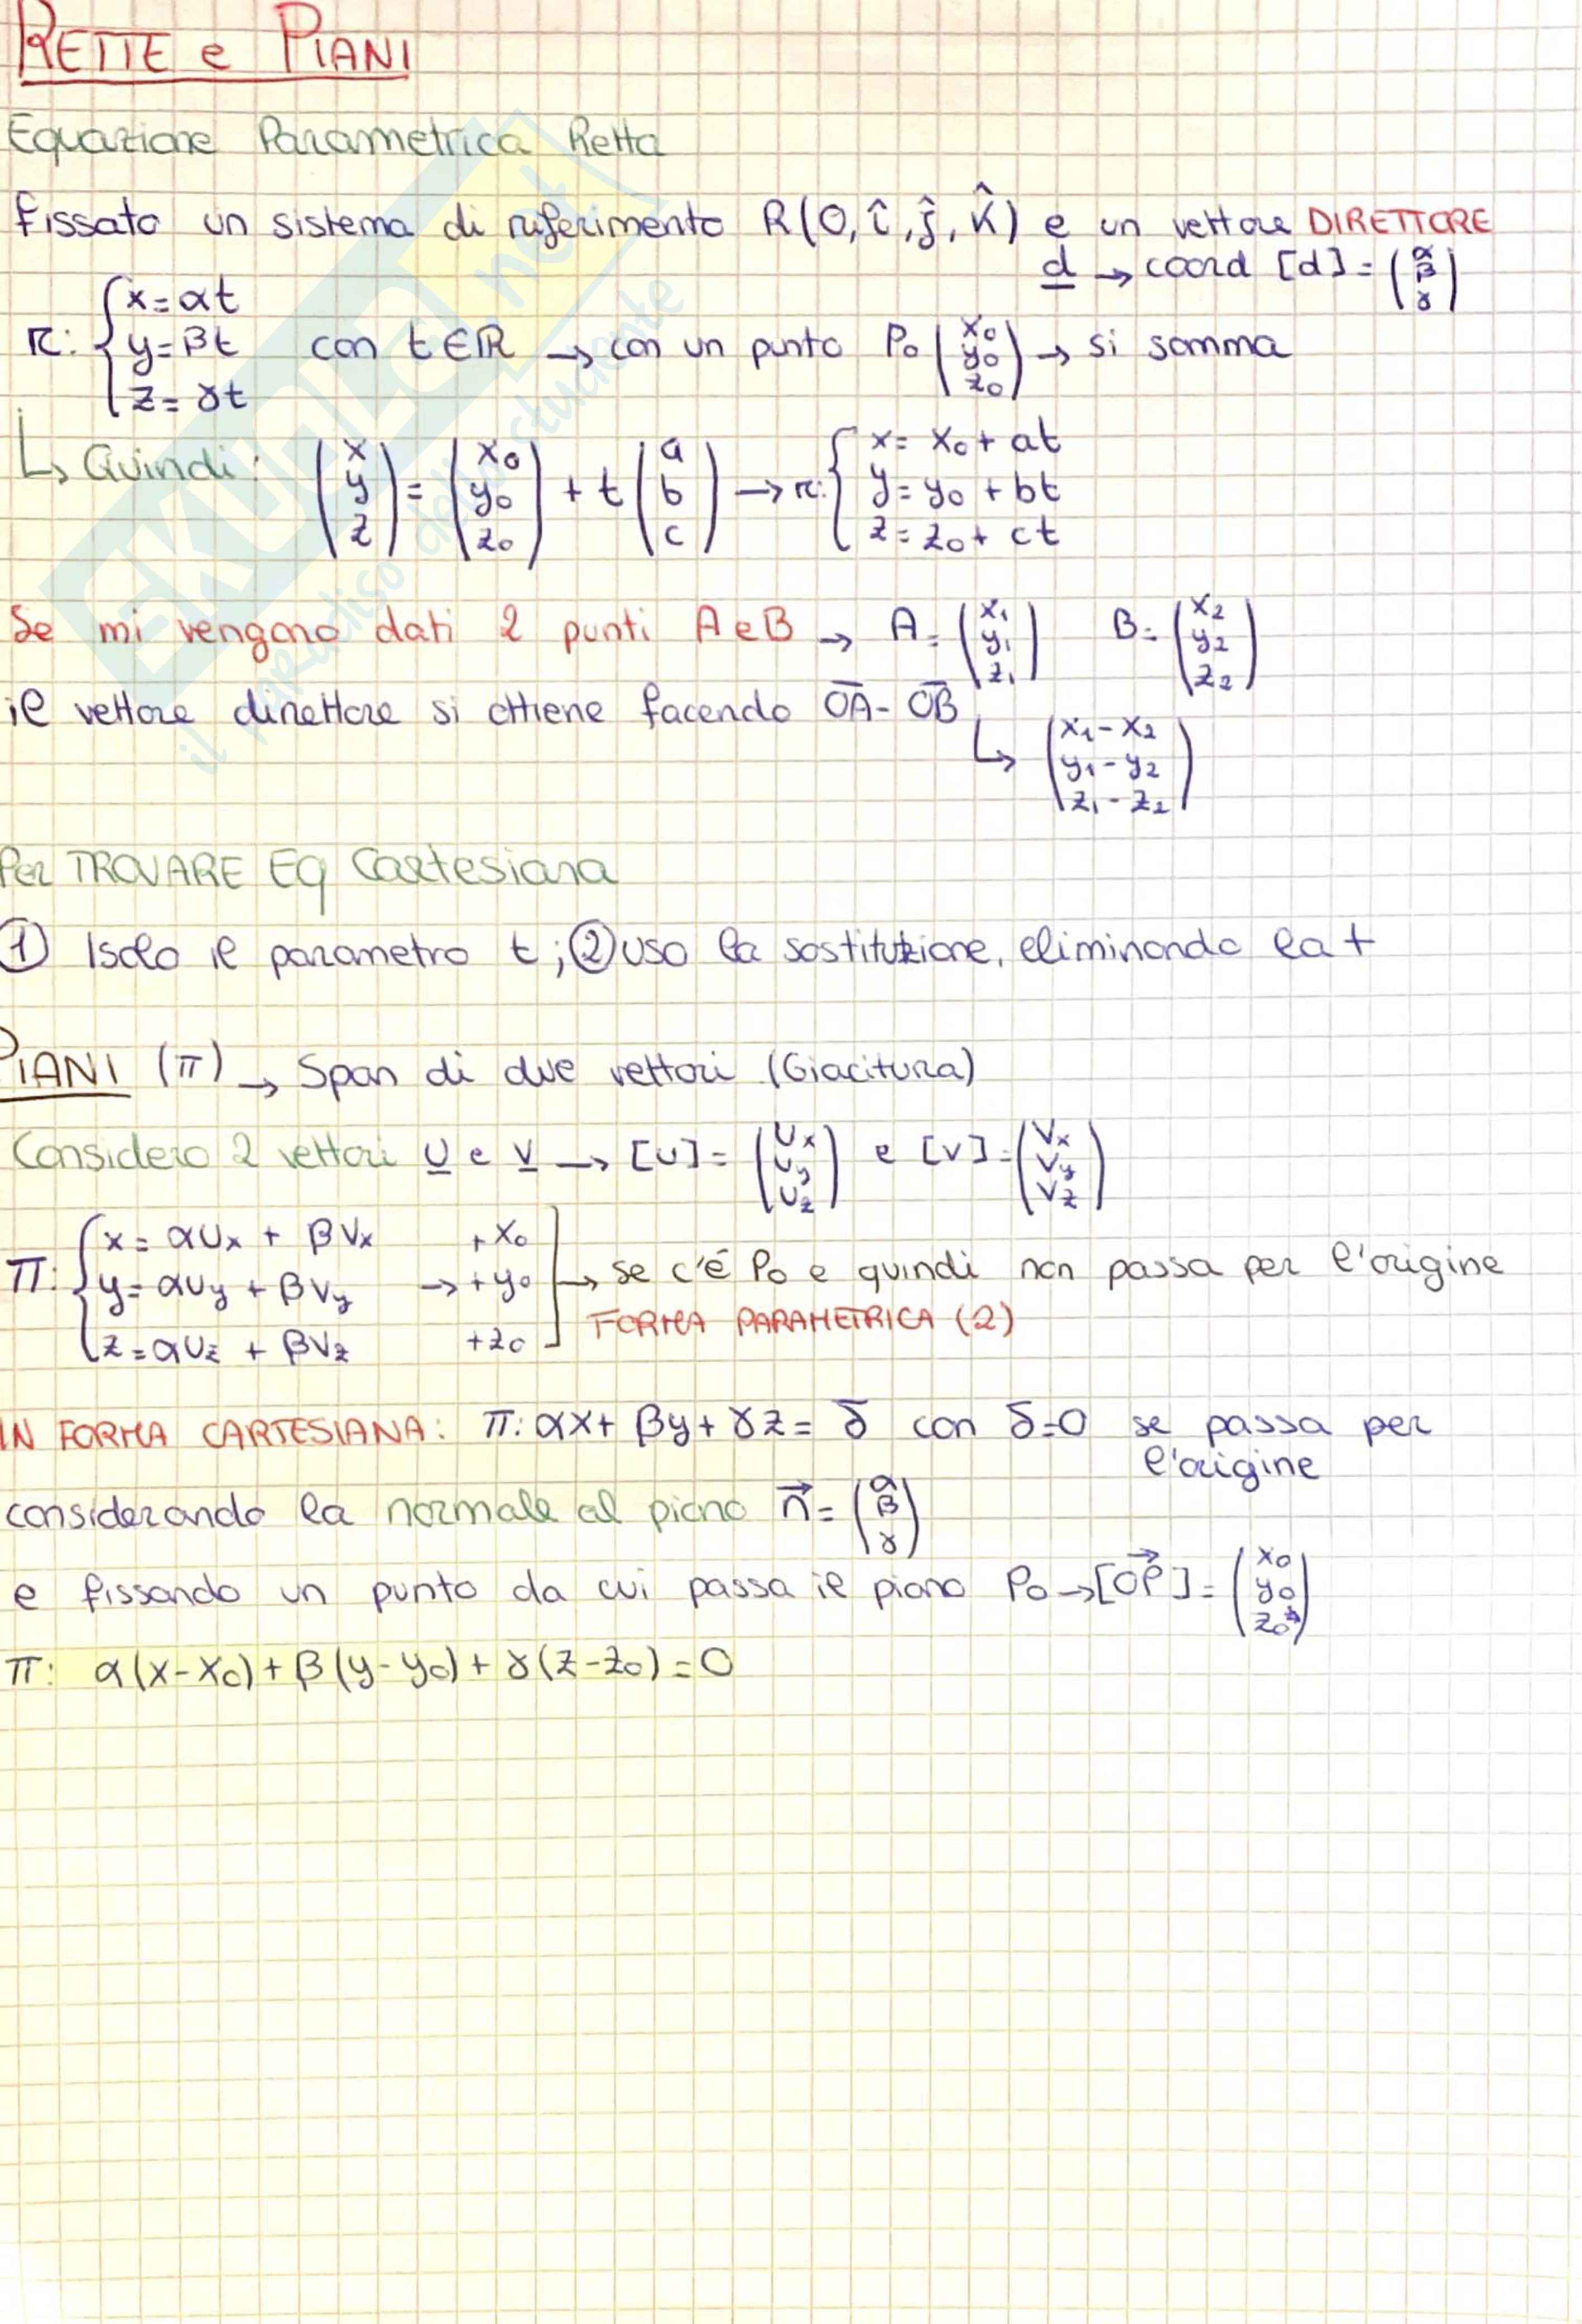 RETTE e PIANI
Equazione Parametrica Retta
fissato un sistema di riferimento R(O, î, ĵ, k̂) e un vettore DIRETTORE
d → coord [d] = (α β γ)
r: { x = αt
y = βt con t ∈ ℝ → con un punto P₀ (x₀ y₀ z₀) → si somma
z = γt
↳ Quindi: (x y z) = (x₀ y₀ z₀) + t (a b c) → r: { x = x₀ + at
y = y₀ + bt
z = z₀ + ct
Se mi vengono dati 2 punti A e B → A = (x₁ y₁ z₁) B = (x₂ y₂ z₂)
il vettore direttore si ottiene facendo OA - OB
↳ (x₁ - x₂ y₁ - y₂ z₁ - z₂)
Per TROVARE EQ Cartesiana
① Isolo il parametro t; ② uso la sostituzione, eliminando la t
PIANI (π) → Span di due vettori (Giacitura)
Considero 2 vettori u e v → [u] = (ux uy uz) e [v] = (vx vy vz)
π: { x = αux + βvx +x₀
y = αuy + βvy → +y₀ → se c'é P₀ e quindi non passa per l'origine
z = αuz + βvz +z₀ FORMA PARAMETRICA (2)
IN FORMA CARTESIANA: π: αx + βy + γz = δ con δ=0 se passa per
l'origine
considerando la normale al piano n⃗ = (α β γ)
e fissando un punto da cui passa il piano P₀ → [OP⃗] = (x₀ y₀ z₀)
π: α(x-x₀) + β(y-y₀) + γ(z-z₀) = 0
SKUOLA.net
il paradiso dello studente